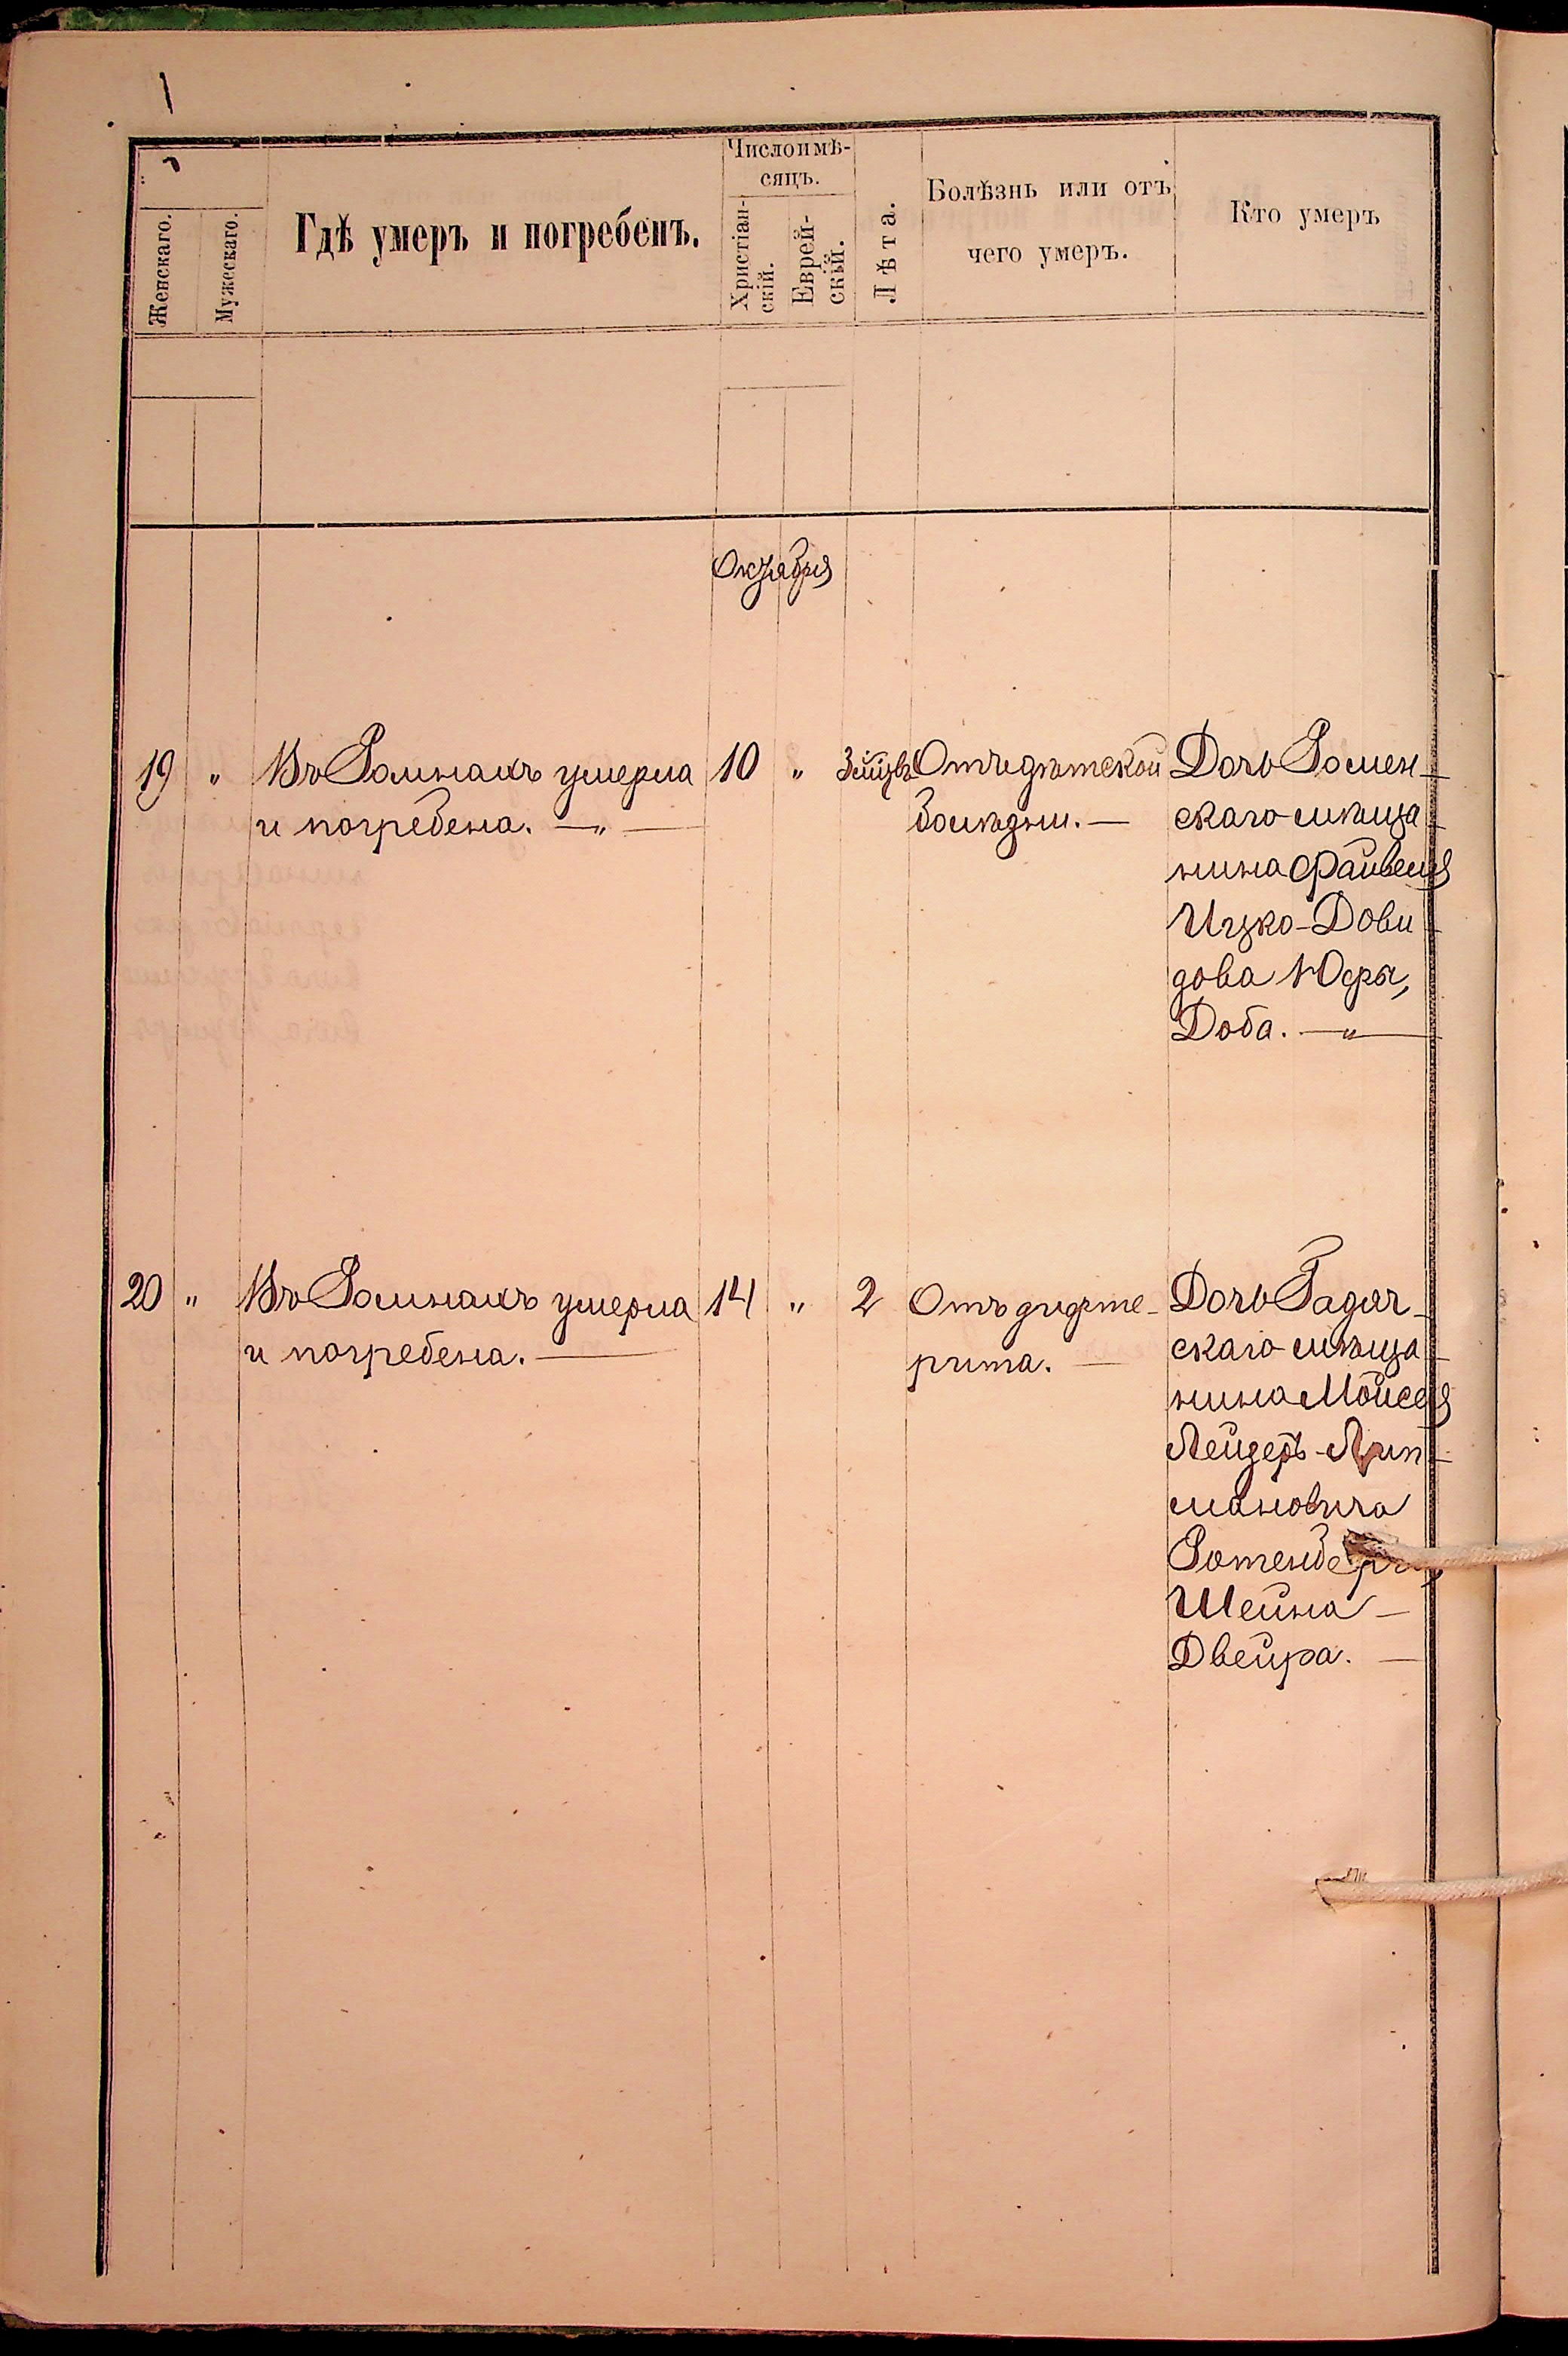 Женскаго.
Мужескаго.
Гдѣ умеръ и погребенъ.
Число и мѣ-
сяцъ.
Христіан-
скій.
Еврей-
скій.
Лѣта.
Болѣзнь или отъ
чего умеръ.
Кто умеръ
Октября
19 " Въ Ромнахъ умерла 10 " 3 мцвъ Отъ дѣтской Дочь Ромен-
и погребена. — " — болѣзни. — скаго мѣща-
нина Файвеля
Ицко-Дови-
дова Юфы,
Доба. — " —
20 " Въ Ромнахъ умерла 14 " 2 Отъ дифте- Дочь Гадяч-
и погребена. — рита. — скаго мѣща-
нина Мойсея
Лейзеръ-Лип-
мановича
Ротенберга,
Шейна-
Двейра. —